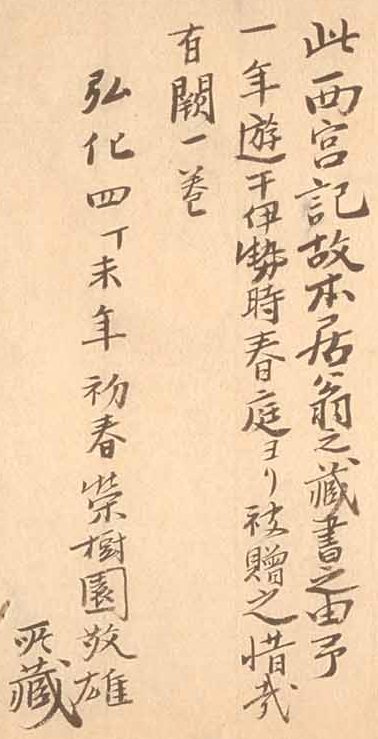 此西宮記故本居翁之藏書之由予
一年遊于伊勢時春庭ヨリ被贈之惜哉
有闕一巻
弘化四丁未年初春榮樹園敬雄
所藏